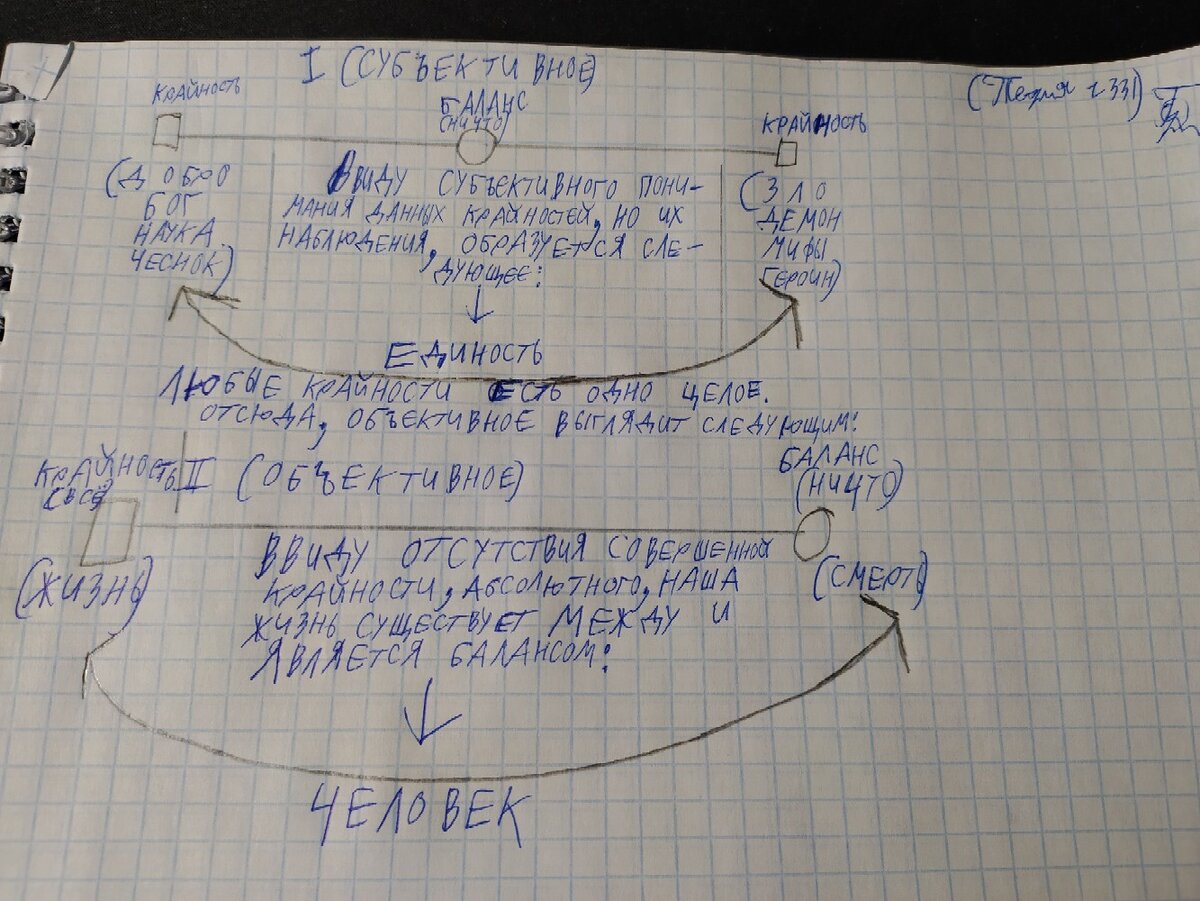 I (СУБЪЕКТИВНОЕ)
КРАЙНОСТЬ
БАЛАНС
(НИЧТО)
КРАЙНОСТЬ
(ДОБРО
БОГ
НАУКА
ЧЕСНОК)
ВВИДУ СУБЪЕКТИВНОГО ПОНИ-
МАНИЯ ДАННЫХ КРАЙНОСТЕЙ, НО ИХ
НАБЛЮДЕНИЯ, ОБРАЗУЕТСЯ СЛЕ-
ДУЮЩЕЕ:
(ЗЛО
ДЕМОН
МИФЫ
ГЕРОИН)
ЕДИНОСТЬ
ЛЮБЫЕ КРАЙНОСТИ ЕСТЬ ОДНО ЦЕЛОЕ.
ОТСЮДА, ОБЪЕКТИВНОЕ ВЫГЛЯДИТ СЛЕДУЮЩИМ:
КРАЙНОСТЬ
(ВСЁ)
II (ОБЪЕКТИВНОЕ)
БАЛАНС
(НИЧТО)
(ЖИЗНЬ)
ВВИДУ ОТСУТСТВИЯ СОВЕРШЕННОЙ
КРАЙНОСТИ, АБСОЛЮТНОГО, НАША
ЖИЗНЬ СУЩЕСТВУЕТ МЕЖДУ И
ЯВЛЯЕТСЯ БАЛАНСОМ:
(СМЕРТЬ)
ЧЕЛОВЕК